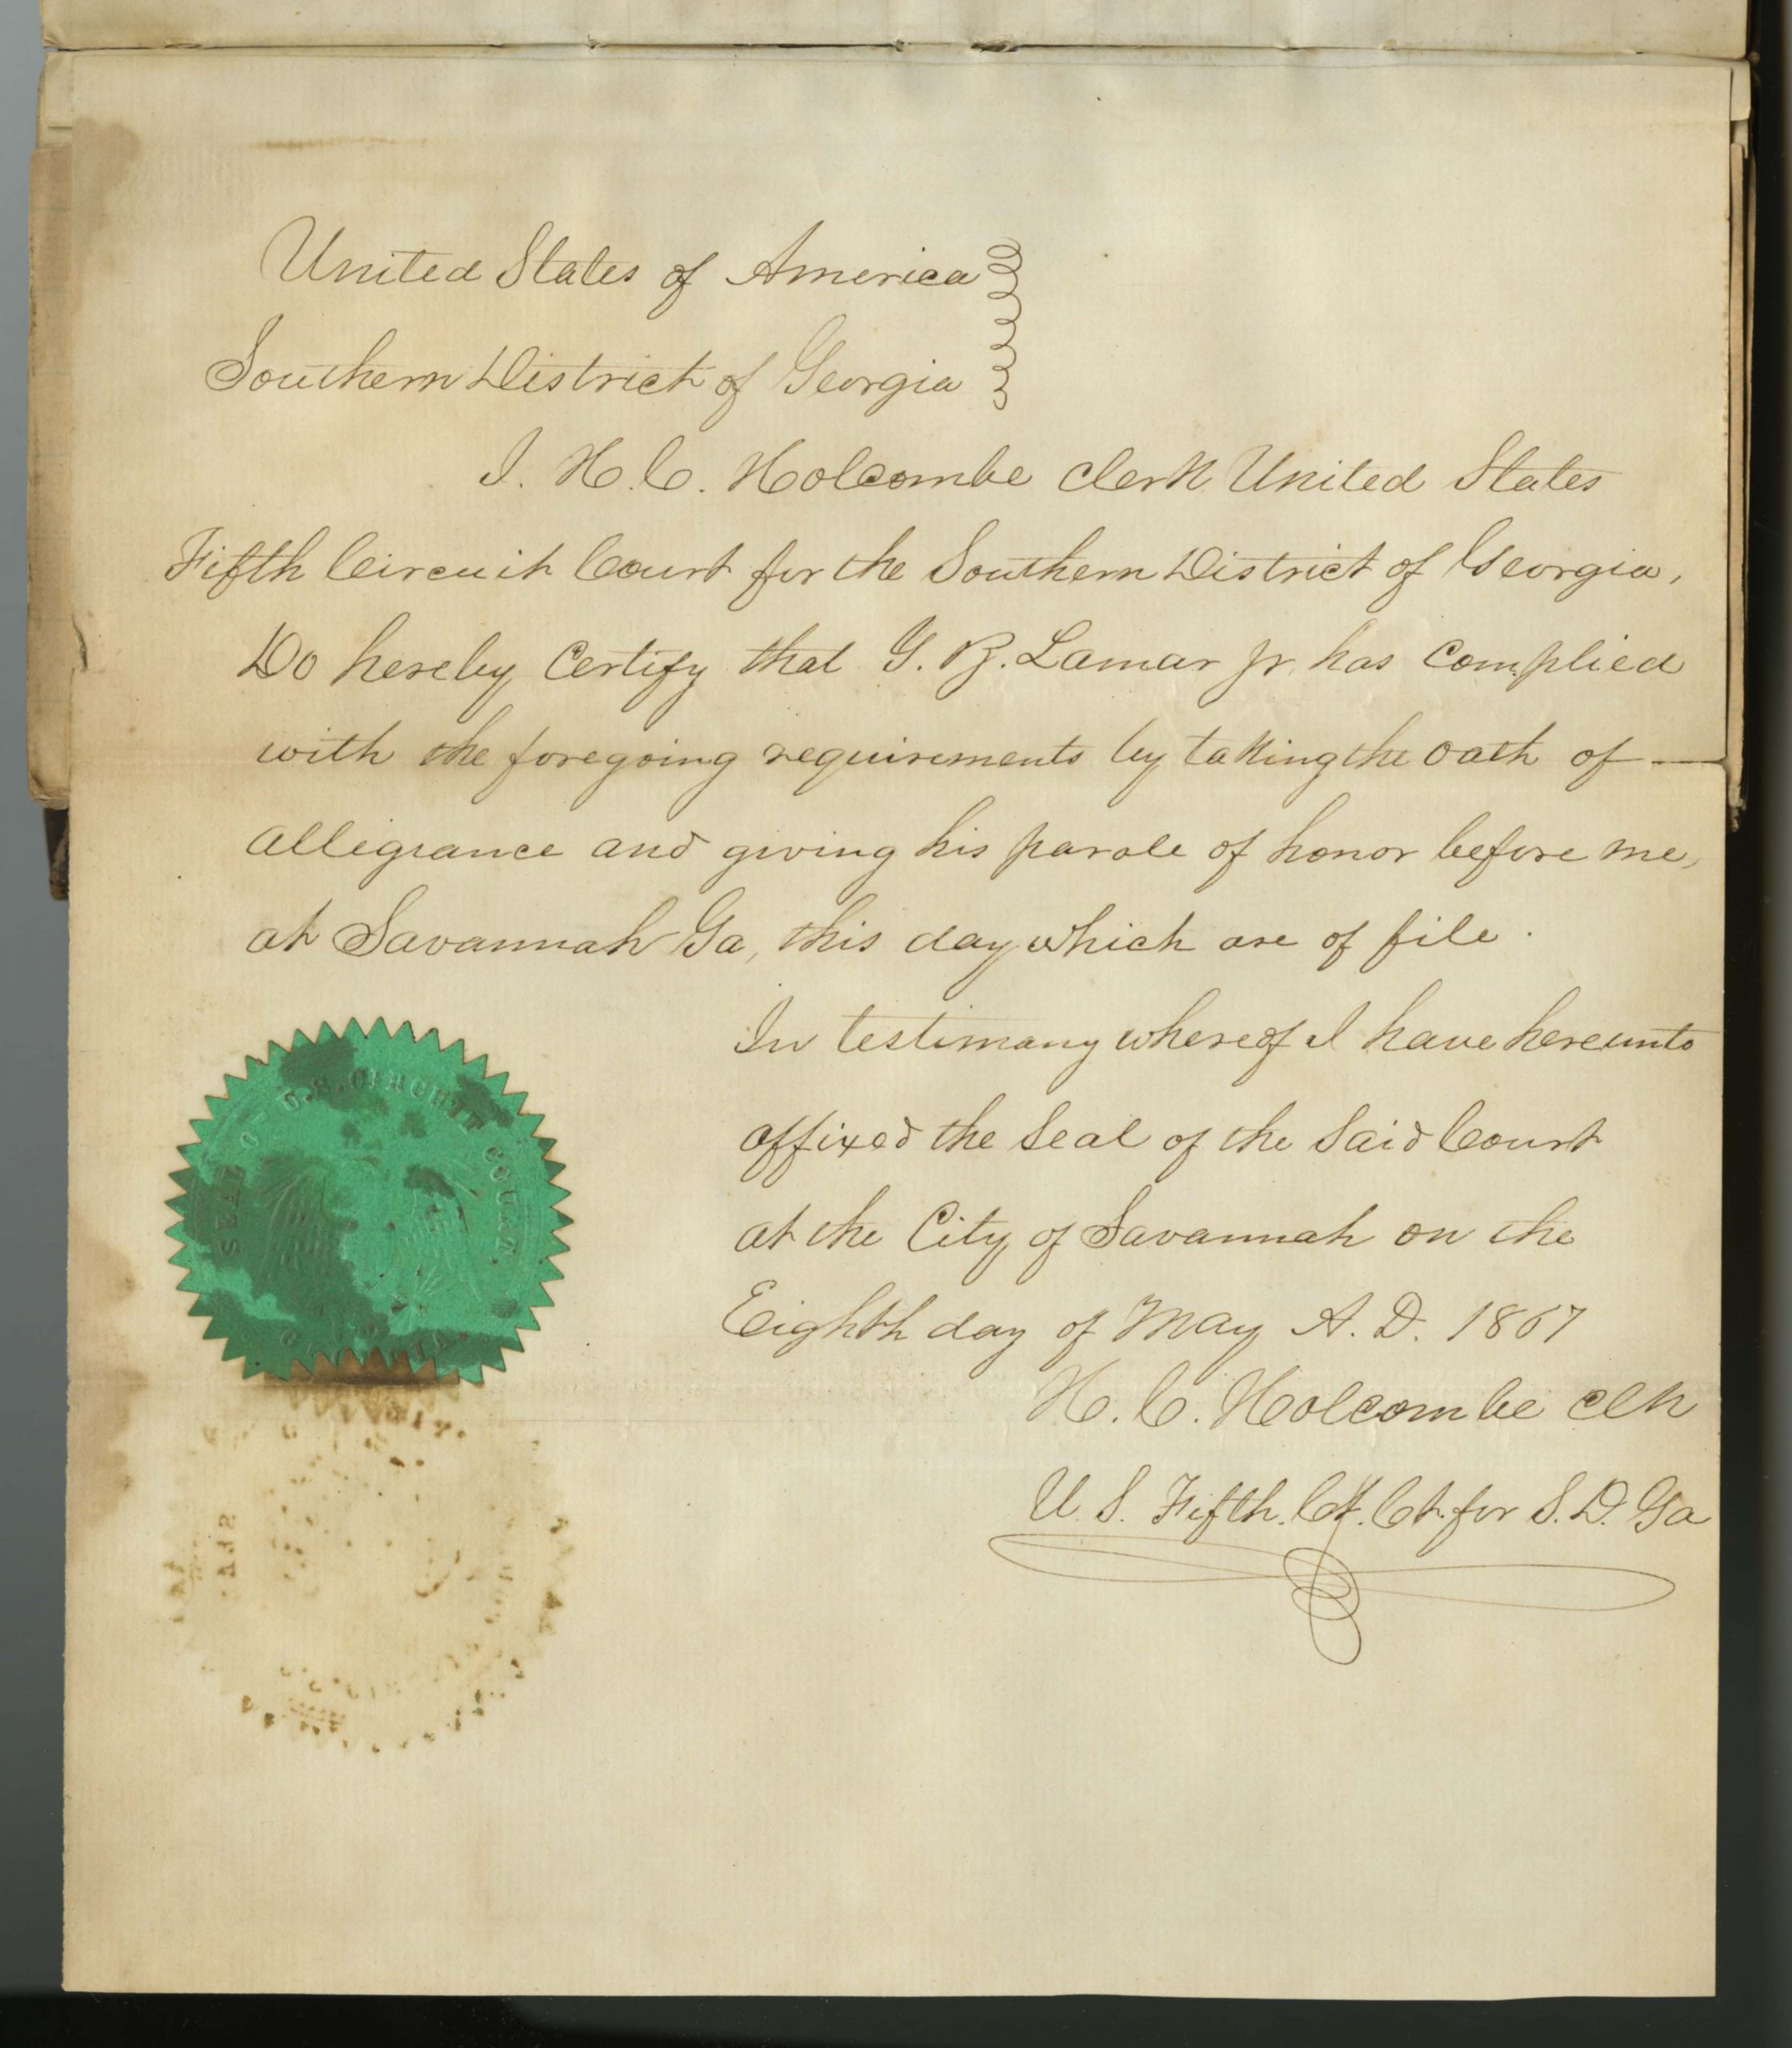 United States of America
Southern District of Georgia
I. H. C. Holcombe Clerk United States
Fifth Circuit Court for the Southern District of Georgia,
Do hereby Certify that G. B. Lamar Jr. has complied
with the foregoing requirements by taking the oath of —
allegiance and giving his parole of honor before me,
at Savannah Ga, this day which are of file.
In testimony whereof I have hereunto
affixed the Seal of the Said Court
at the City of Savannah on the
Eighth day of May A. D. 1867
H. C. Holcombe Clk
U. S. Fifth. Ct. Ct. for S. D. Ga
U.S. CIRCUIT COURT
SEAL